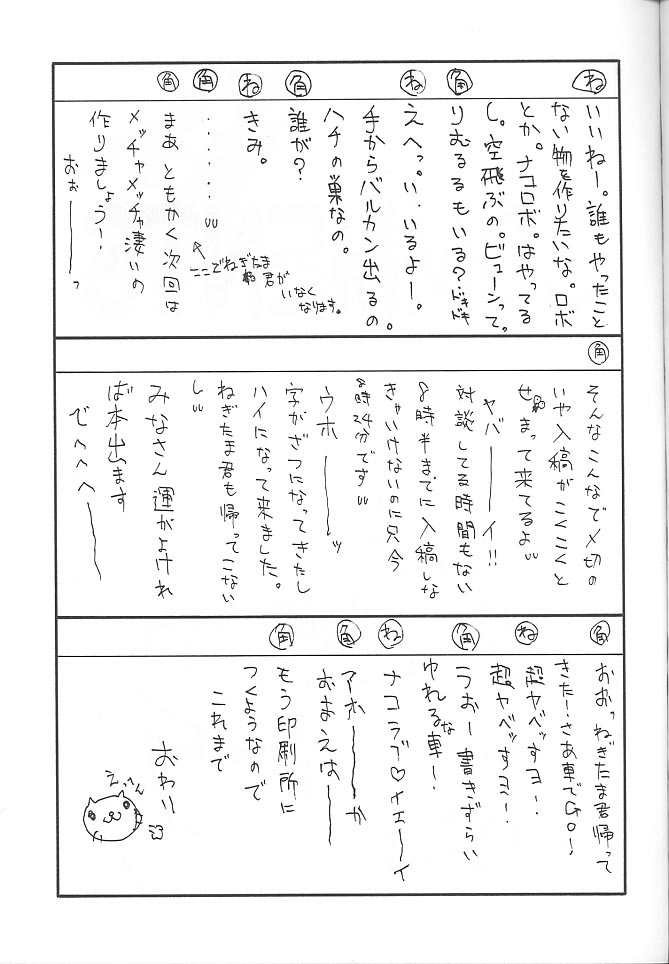 ね
いいねー。誰もやったこと
ない物を作りたいな。ロボ
とか。ナコロボ。はやってる
し。空飛ぶの。ビューンって。
角
りむるるもいる?ドキドキ
ね
えへっ。い、いるよー。
手からバルカン出るの。
ハチの巣なの。
角
誰が?
ね
きみ。
角
・・・・・・
ここでねぎたま
君が
いなく
なります。
角
まあ ともかく次回は
メッチャメッチャ凄いの
作りましょう!
おぉ――――っ
角
そんなこんなで〆切の
いや入稿がこくこくと
せまって来てるよ
ヤバ――――イ!!
対談してる時間もない
8時半までに入稿しな
きゃいけないのに只今
8時24分です
ウホ――――ッ
字がざつになってきたし
ハイになって来ました。
ねぎたま君も帰ってこない
し
みなさん 運がよけれ
ば本出ます
でへへへ――――
角
おおっねぎたま君帰って
きた!さあ車でGO!
ね
超ヤベッすヨ!
超ヤベッすヨ!
角
うおー書きずらい
ゆれるな車!
ね
ナコラブ♡イエーイ
角
アホ――――か
おまえは――
角
もう印刷所に
つくようなので
これまで
おわり
えってん